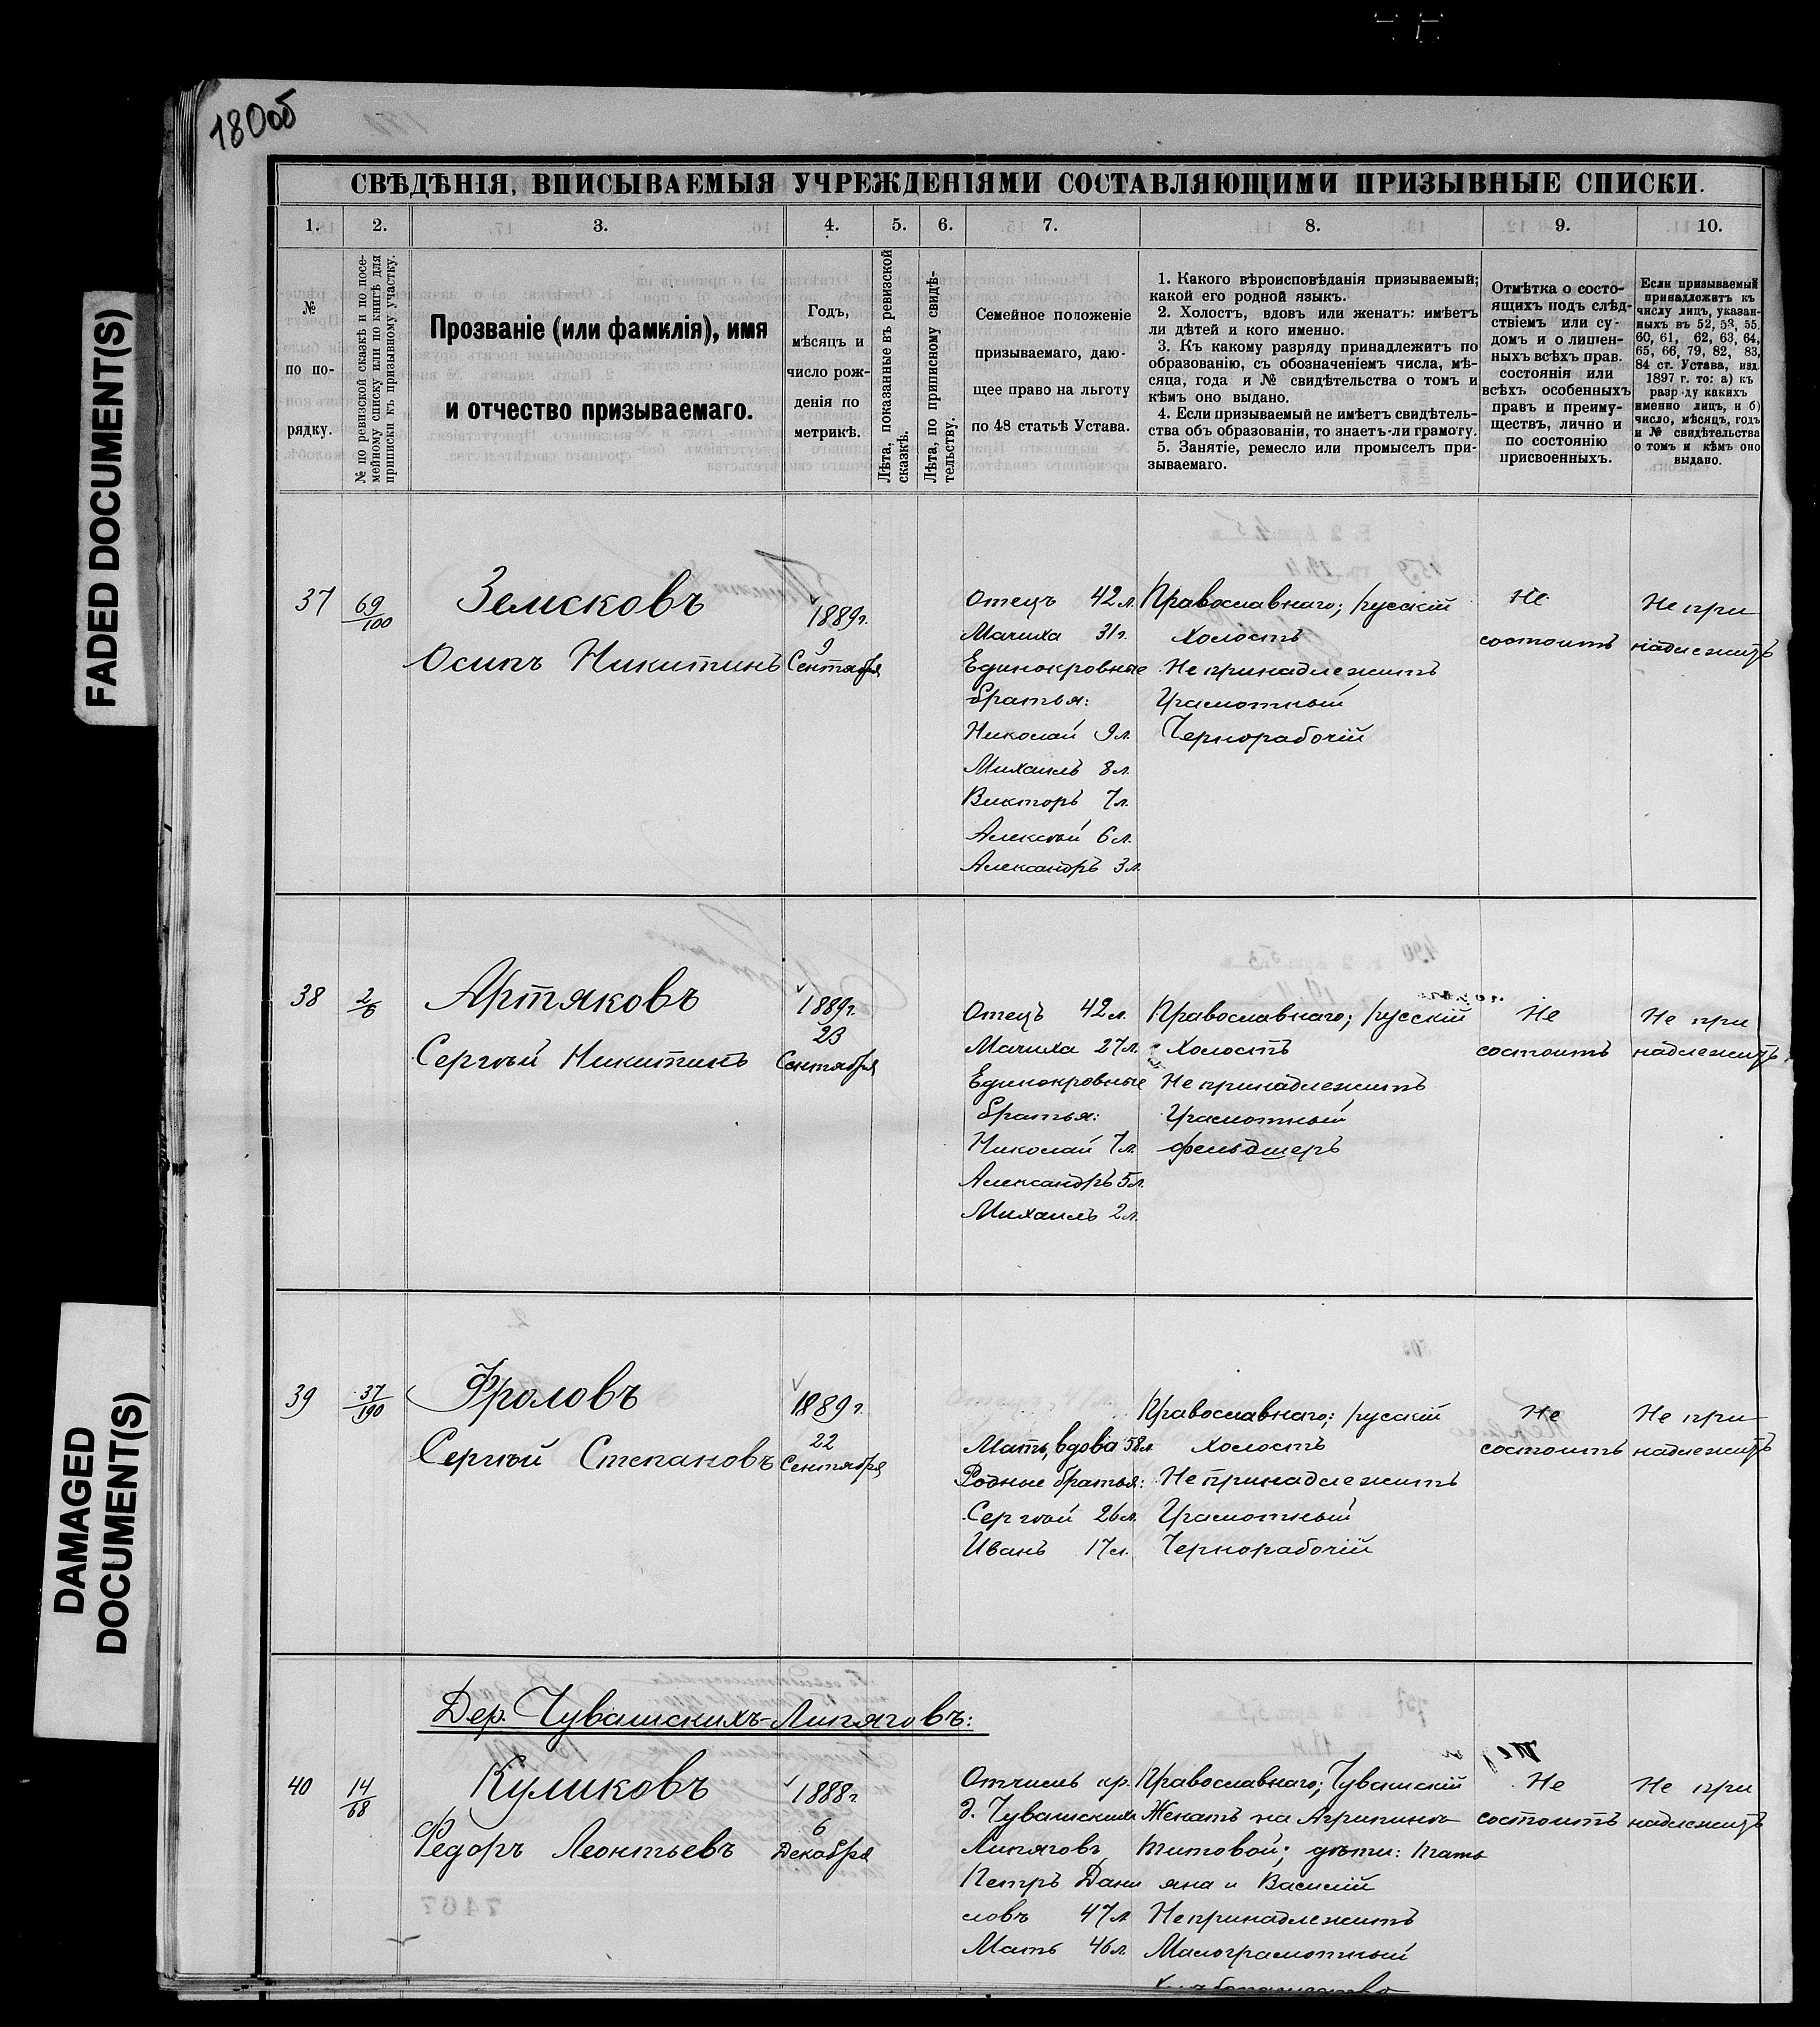 180об
СВѢДѢНІЯ, ВПИСЫВАЕМЫЯ УЧРЕЖДЕНІЯМИ СОСТАВЛЯЮЩИМИ ПРИЗЫВНЫЕ СПИСКИ.
1. 2. 3. 4. 5. 6. 7. 8. 9. 10.
№
по по-
рядку.
№ по ревизской сказкѣ и по посе-
мейному списку или по книгѣ для
приписки къ призывному участку.
Прозваніе (или фамилія), имя
и отчество призываемаго.
Годъ,
мѣсяцъ и
число рож-
денія по
метрикѣ.
Лѣта, показанныя въ ревизской
сказкѣ.
Лѣта, по приписному свидѣ-
тельству.
Семейное положеніе
призываемаго, даю-
щее право на льготу
по 48 статьѣ Устава.
1. Какого вѣроисповѣданія призываемый;
какой его родной языкъ.
2. Холостъ, вдовъ или женатъ: имѣетъ
ли дѣтей и кого именно.
3. Къ какому разряду принадлежитъ по
образованію, съ обозначеніемъ числа, мѣ-
сяца, года и № свидѣтельства о томъ и
кѣмъ оно выдано.
4. Если призываемый не имѣетъ свидѣтель-
ства объ образованіи, то знаетъ-ли грамоту.
5. Занятіе, ремесло или промыселъ при-
зываемаго.
Отмѣтка о состо-
ящихъ подъ слѣд-
ствіемъ или су-
домъ и о лишен-
ныхъ всѣхъ прав.
состоянія или
всѣхъ особенныхъ
правъ и преиму-
ществъ, лично и
по состоянію
присвоенныхъ.
Если призываемый
принадлежитъ къ
числу лицъ, указан-
ныхъ въ 52, 53, 55,
60, 61, 62, 63, 64,
65, 66, 79, 82, 83,
84 ст. Устава, изд.
1897 г. то: а) къ
разр ду какихъ
именно лицъ, и б)
число, мѣсяцъ, годъ
и № свидѣтельства
о томъ и кѣмъ оно
выдано.
37
69/100
Земсковъ
Осипъ Никитинъ
1889г.
9
Сентября
Отецъ 42 л.
Мачиха 31 г.
Единокровные
братья:
Николай 9 л.
Михаилъ 8 л.
Викторъ 7 л.
Алексѣй 6 л.
Александръ 3 л.
Православнаго; русскій
Холостъ
Не принадлежитъ
Грамотный
Чернорабочій
Не
состоитъ
Не при
надлежитъ
38
2/6
Артяковъ
Сергѣй Никитинъ
1889г.
23
Сентября
Отецъ 42 л.
Мачиха 27 л.
Единокровные
братья:
Николай 7 л.
Александръ 5 л.
Михаилъ 2 л.
Православнаго; русскій
Холостъ
Не принадлежитъ
Грамотный
фельдшеръ
Не
состоитъ
Не при
надлежитъ
39
37/190
Фроловъ
Сергѣй Степановъ
1889 г.
22
Сентября
Мать, вдова 58 л.
Родные братья:
Сергѣй 26 л.
Иванъ 17 л.
Православнаго; русскій
Холостъ
Не принадлежитъ
Грамотный
Чернорабочій
Не
состоитъ
Не при
надлежитъ
Дер. Чувашскихъ-Липяговъ:
40
14/68
Куликовъ
Федоръ Леонтьевъ
1888 г.
6
Декабря
Отчимъ кр.
д. Чувашскихъ
Липяговъ
Петръ Дани
ловъ 47 л.
Мать 46 л.
Православнаго; Чувашскій
Женатъ на Агрипинѣ
Титовой; дѣти: Тать
яна и Василій
Не принадлежитъ
Малограмотный
Не
состоитъ
Не при
надлежитъ
FADED DOCUMENT(S)
DAMAGED
DOCUMENT(S)